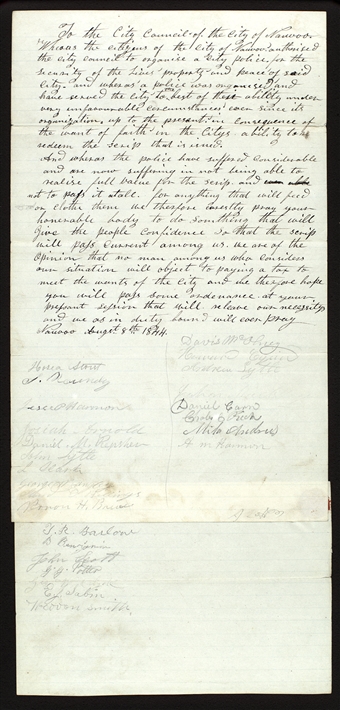 To the City Council of the City of Nauvoo
Whereas the citizens of the City of Nauvoo authorised
the city council to organise a City Police, for the
security of the Lives property and peace of said
City, and wheras a police was organized and
have served the city to best of their ability under
very unfavourable circumstances ever since its
organization, up to the present in consequence of
the want of faith in the Citys ability to
redeem the scrip that is issued.
And wheras the police have suffered considerable
and are now suffering in not being able to
realise full value for the scrip, and
not to pass it atall. for anything that will feed
or clothe them we therefore directly pray your
honerable body to do something that will
give the people confidence so that the scrip
will pass current among us. we are of the
opinion that no man among us who considers
our situation will object to paying a tax to
meet the wants of the City and we therefore hope
you will pass some ordenance at your
present session that will releave our necessitys
and we as in duty bound will ever pray
Nauvoo Augst 8th 1844
Hosea Stout
Daniel Carn
Josiah Arnold
H M Harmon
Daniel M. Repsher
John Lytle
J. R. Barlow
John Scott
E. J. Sabin
Warren Smith